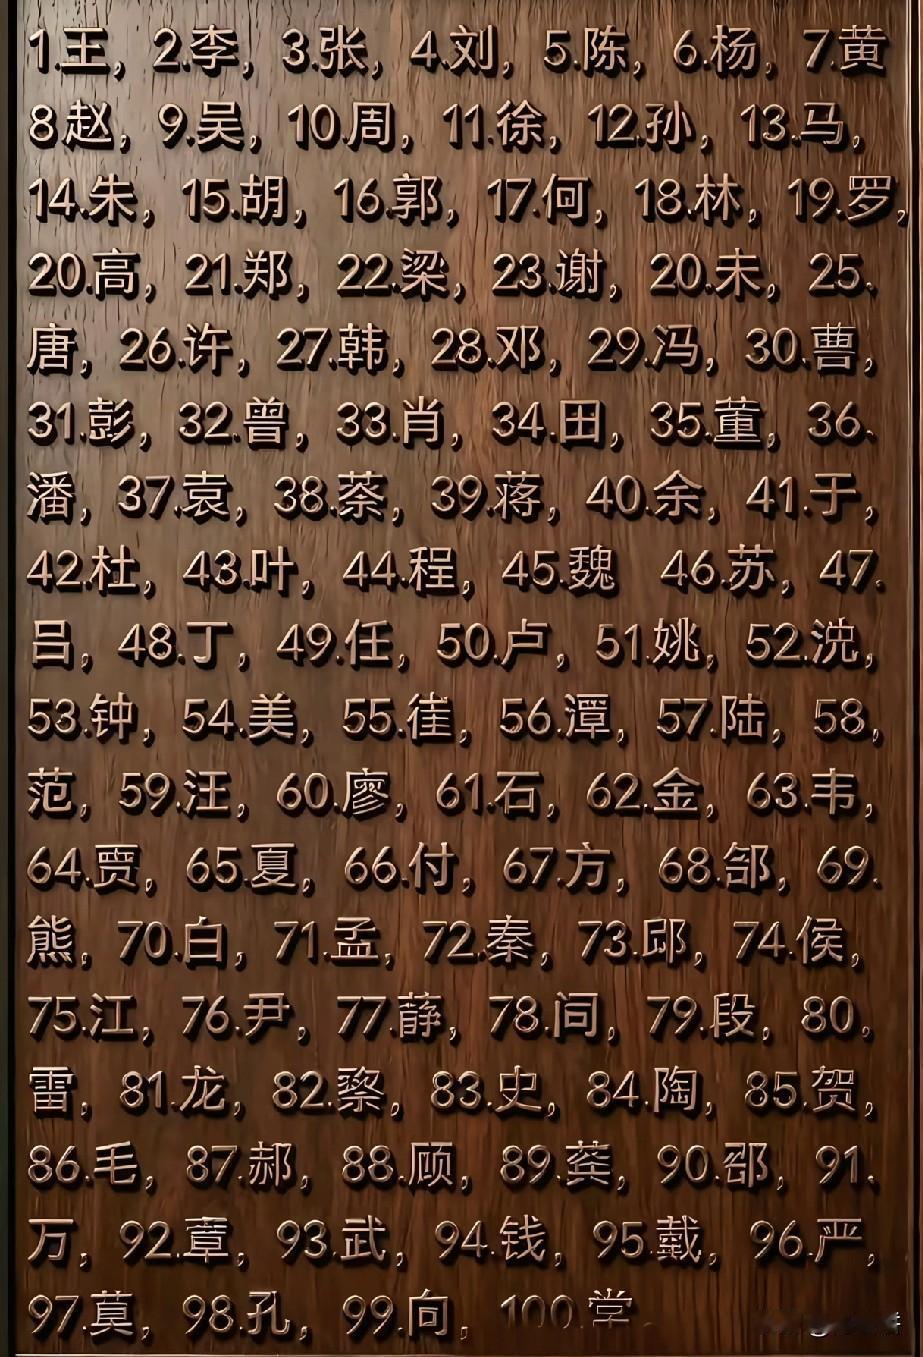 1.王，2.李，3.张，4.刘，5.陈，6.杨，7.黄
8赵，9.吴，10.周，11.徐，12.孙，13.马，
14.朱，15.胡，16.郭，17.何，18.林，19.罗，
20.高，21.郑，22.梁，23.谢，20.未，25.
唐，26.许，27.韩，28.邓，29.冯，30.曹，
31.彭，32.曾，33.肖，34.田，35.董，36.
潘，37.袁，38.蔡，39.蒋，40.余，41.于，
42.杜，43.叶，44.程，45.魏 46.苏，47.
吕，48.丁，49.任，50.卢，51.姚，52.沈，
53.钟，54.美，55.崔，56.潭，57.陆，58，
范，59.汪，60.廖，61.石，62.金，63.韦，
64.贾，65.夏，66.付，67.方，68.邹，69.
熊，70.白，71.孟，72.秦，73.邱，74.侯，
75.江，76.尹，77.薛，78.间，79.段，80。
雷，81.龙，82.黎，83.史，84.陶，85.贺，
86.毛，87.郝，88.顾，89.龚，90.邵，91.
万，92.章，93.武，94.钱，95.戴，96.严，
97.莫，98.孔，99.向，100.常